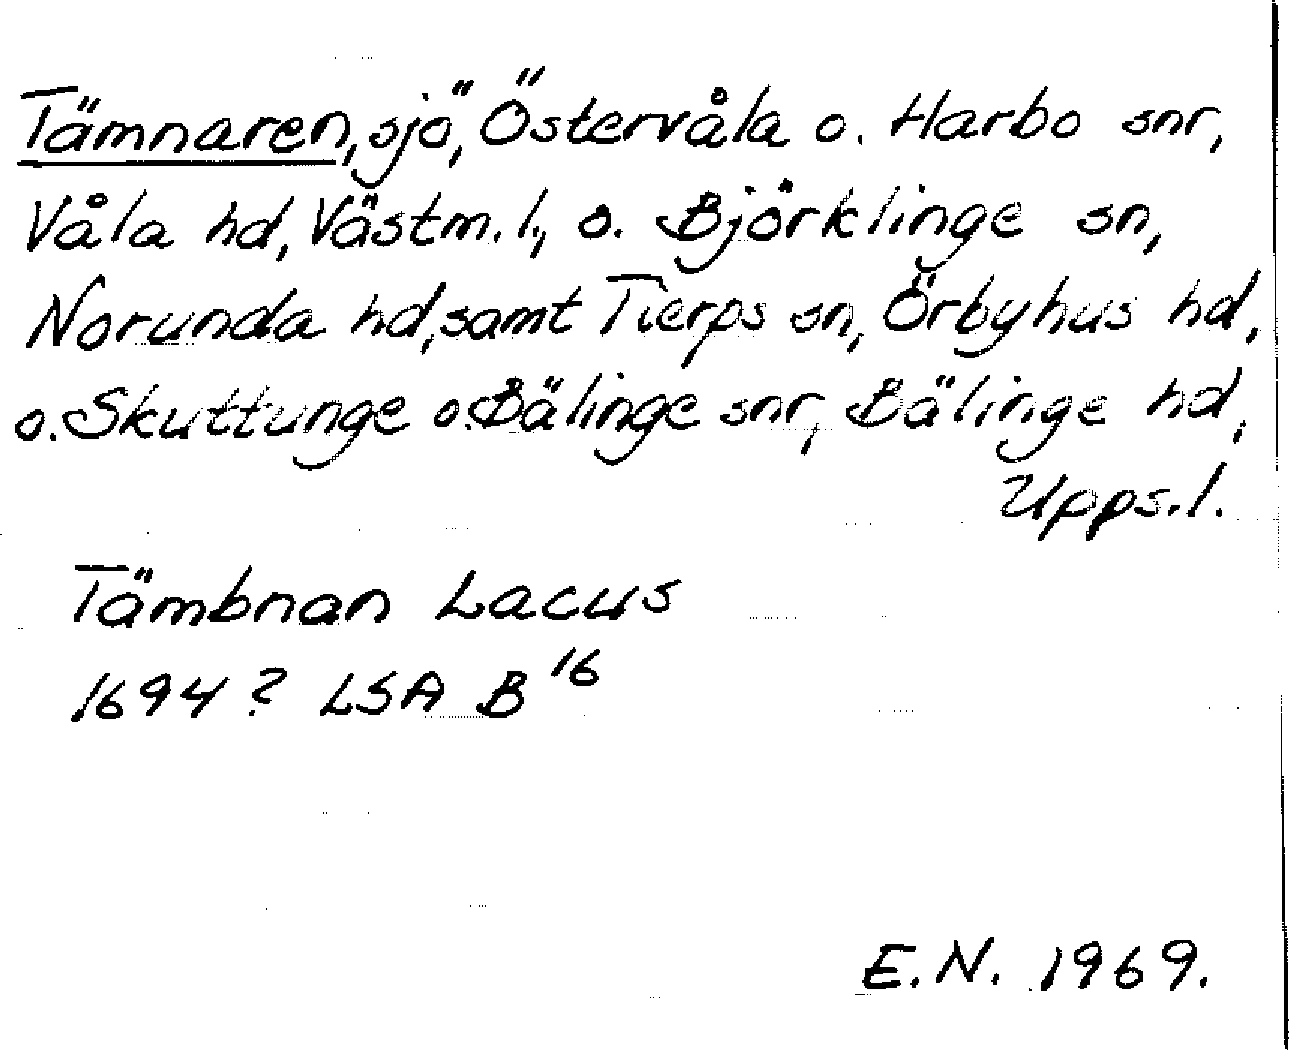 Tämnaren, sjö, Östervåla o. Harbo snr,
Våla hd, Västm. l., o. Björklinge sn,
Norunda hd, samt Tierps sn, Örbyhus hd,
o. Skuttunge o. Bälinge snr, Bälinge hd,
Upps. l.
Tämbnan Lacus
1694? LSA B16
E.N. 1969.